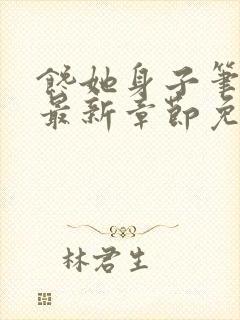 馋她身子笔
最新章节免
林君生